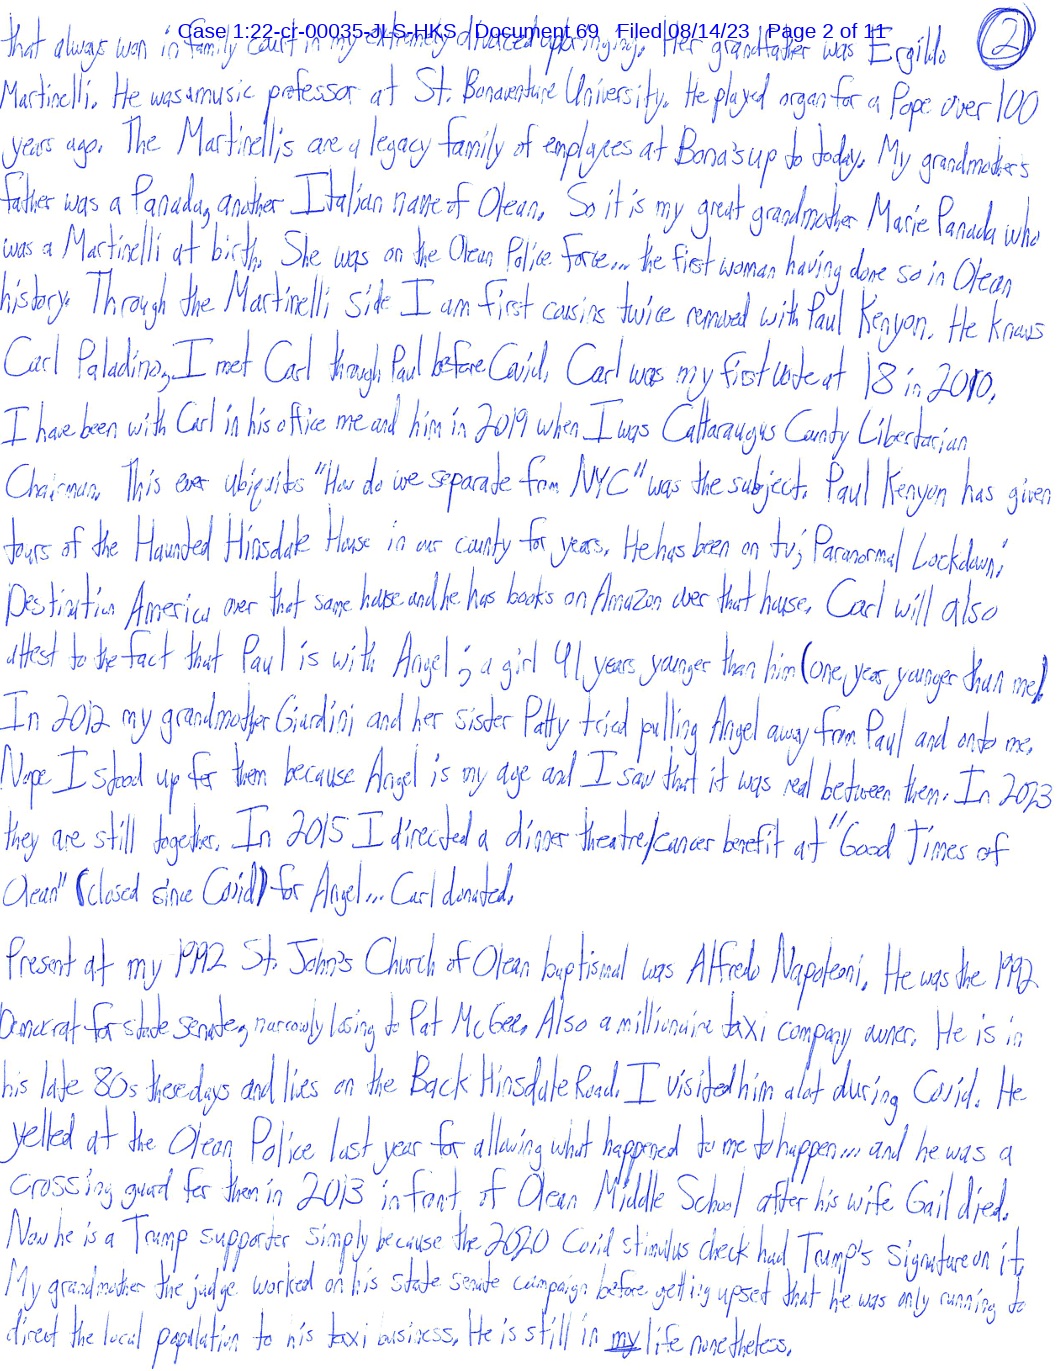 Case 1:22-cr-00035-JLS-HKS Document 69 Filed 08/14/23 Page 2 of 11
2
that always won in family court in my extremely divorced upbringing. Her grandfather was Ergildo
Martinelli. He was a music professor at St. Bonaventure University. He played organ for a Pope over 100
years ago. The Martinellis are a legacy family of employees at Bona's up to today. My grandmother's
father was a Panada, another Italian name of Olean. So it is my great grandmother Marie Panada who
was a Martinelli at birth. She was on the Olean Police force... the first woman having done so in Olean
history. Through the Martinelli side I am first cousins twice removed with Paul Kenyon. He knows
Carl Paladino, I met Carl through Paul before Covid. Carl was my first vote at 18 in 2010.
I have been with Carl in his office me and him in 2019 when I was Cattaraugus County Libertarian
Chairman. This ever ubiquitos "How do we separate from NYC" was the subject. Paul Kenyon has given
tours of the Haunted Hinsdale House in our county for years. He has been on tv; Paranormal Lockdown,
Destination America over that same house and he has books on Amazon over that house. Carl will also
attest to the fact that Paul is with Angel; a girl 41 years younger than him (one year younger than me).
In 2012 my grandmother Giardini and her sister Patty tried pulling Angel away from Paul and onto me.
Nope I stood up for them because Angel is my age and I saw that it was real between them. In 2023
they are still together. In 2015 I directed a dinner theatre/cancer benefit at "Good Times of
Olean" (closed since Covid) for Angel... Carl donated.
Present at my 1992 St. John's Church of Olean baptismal was Alfredo Napoleoni. He was the 1992
Democrat for state senate, narrowly losing to Pat McGee. Also a millionaire taxi company owner. He is in
his late 80s these days and lives on the Back Hinsdale Road. I visited him alot during Covid. He
yelled at the Olean Police last year for allowing what happened to me to happen... and he was a
crossing guard for them in 2013 in front of Olean Middle School after his wife Gail died.
Now he is a Trump supporter simply because the 2020 Covid stimulus check had Trump's signature on it.
My grandmother the judge worked on his state senate campaign before getting upset that he was only running to
direct the local population to his taxi business. He is still in my life nonetheless.